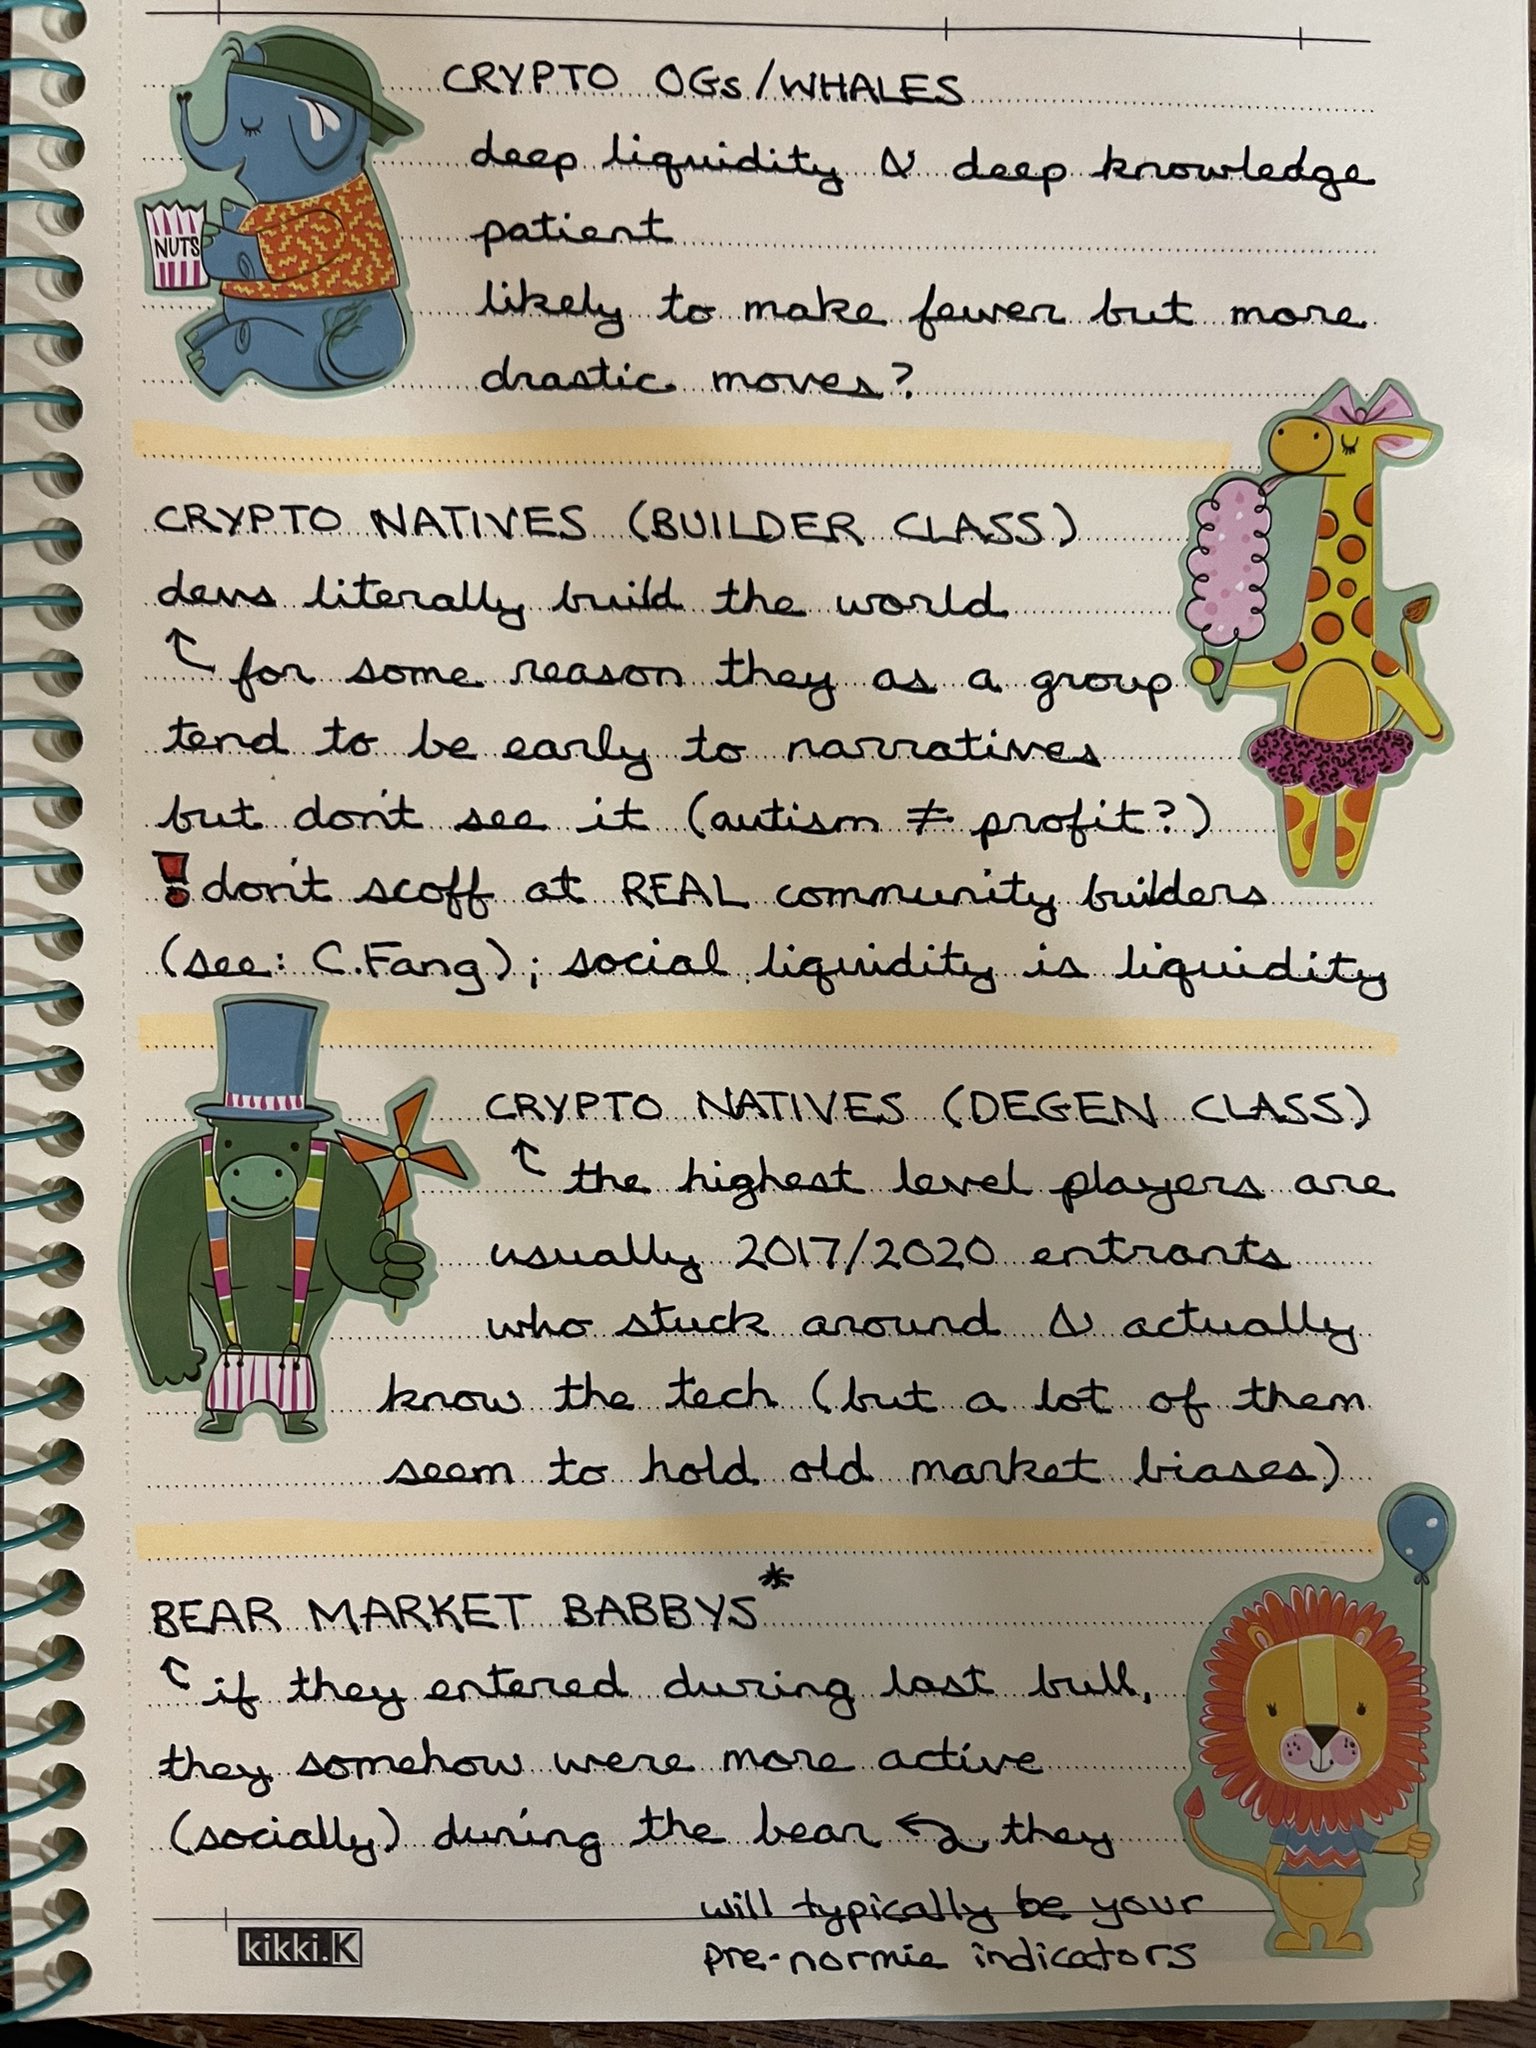 CRYPTO OGs/WHALES
deep liquidity & deep knowledge
patient
NUTS
likely to make fewer but more
drastic moves?
CRYPTO NATIVES (BUILDER CLASS)
devs literally build the world
↖ for some reason they as a group
tend to be early to narratives
but don't see it (autism ≠ profit?)
! don't scoff at REAL community builders
(see: C.Fang); social liquidity is liquidity
CRYPTO NATIVES (DEGEN CLASS)
↖ the highest level players are
usually 2017/2020 entrants
who stuck around & actually
know the tech (but a lot of them
seem to hold old market biases)
BEAR MARKET BABBYS*
↖ if they entered during last bull,
they somehow were more active
(socially) during the bear ↩ they
will typically be your
pre-normie indicators
kikki.K